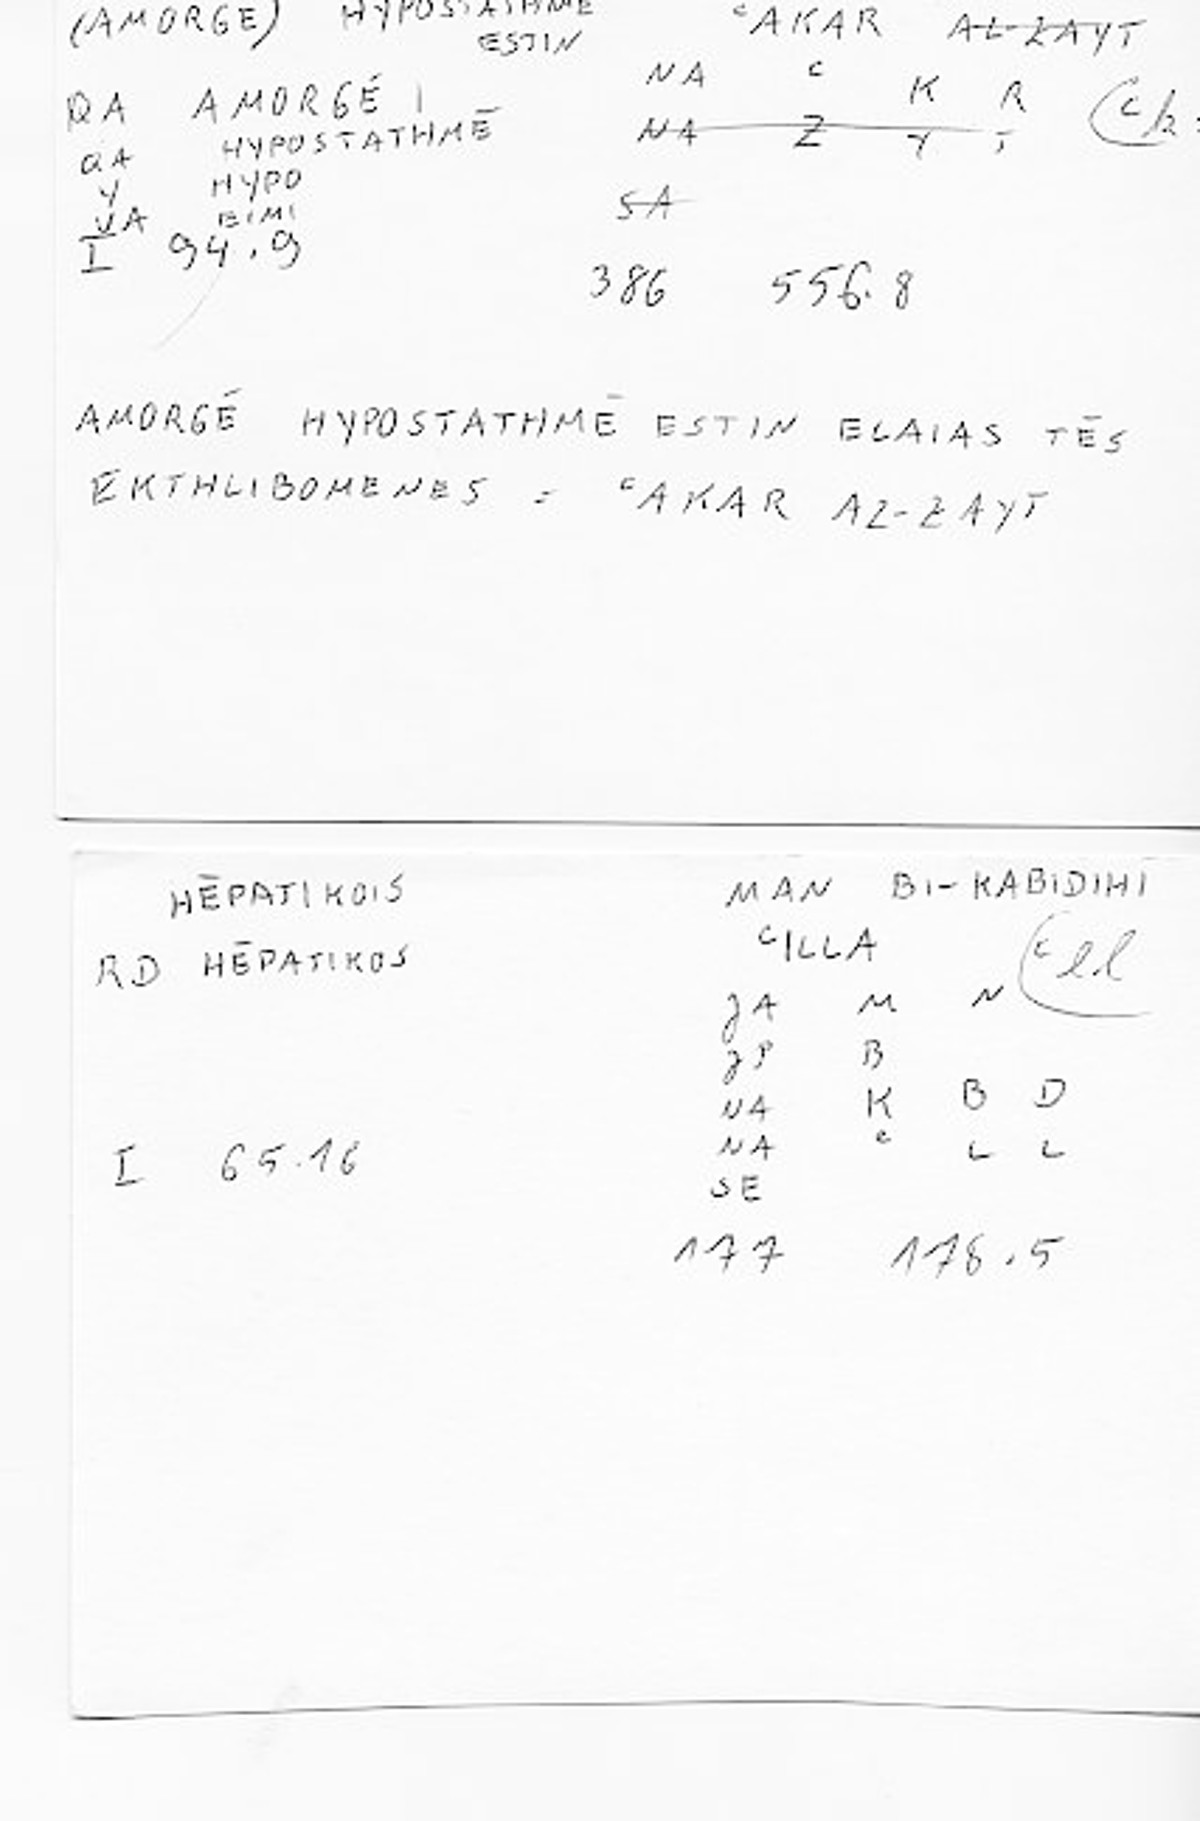 (AMORGE) HYPOSTATHME ᶜAKAR AL-ZAYT
ESTIN
NA ᶜ K R
QA AMORGĒ |
NA Z Y T
QA HYPOSTATHMĒ
Y HYPO
SA
VA EIMI
I 94.9
386 556.8
AMORGĒ HYPOSTATHMĒ ESTIN ELAIAS TĒS
EKTHLIBOMENES = ᶜAKAR AL-ZAYT
HĒPATIKOIS MAN BI-KABIDIHI
ᶜILLA
RD HĒPATIKOS ᶜll
JA M N
JP B
NA K B D
NA ᶜ L L
I 65.16
SE
177 178.5